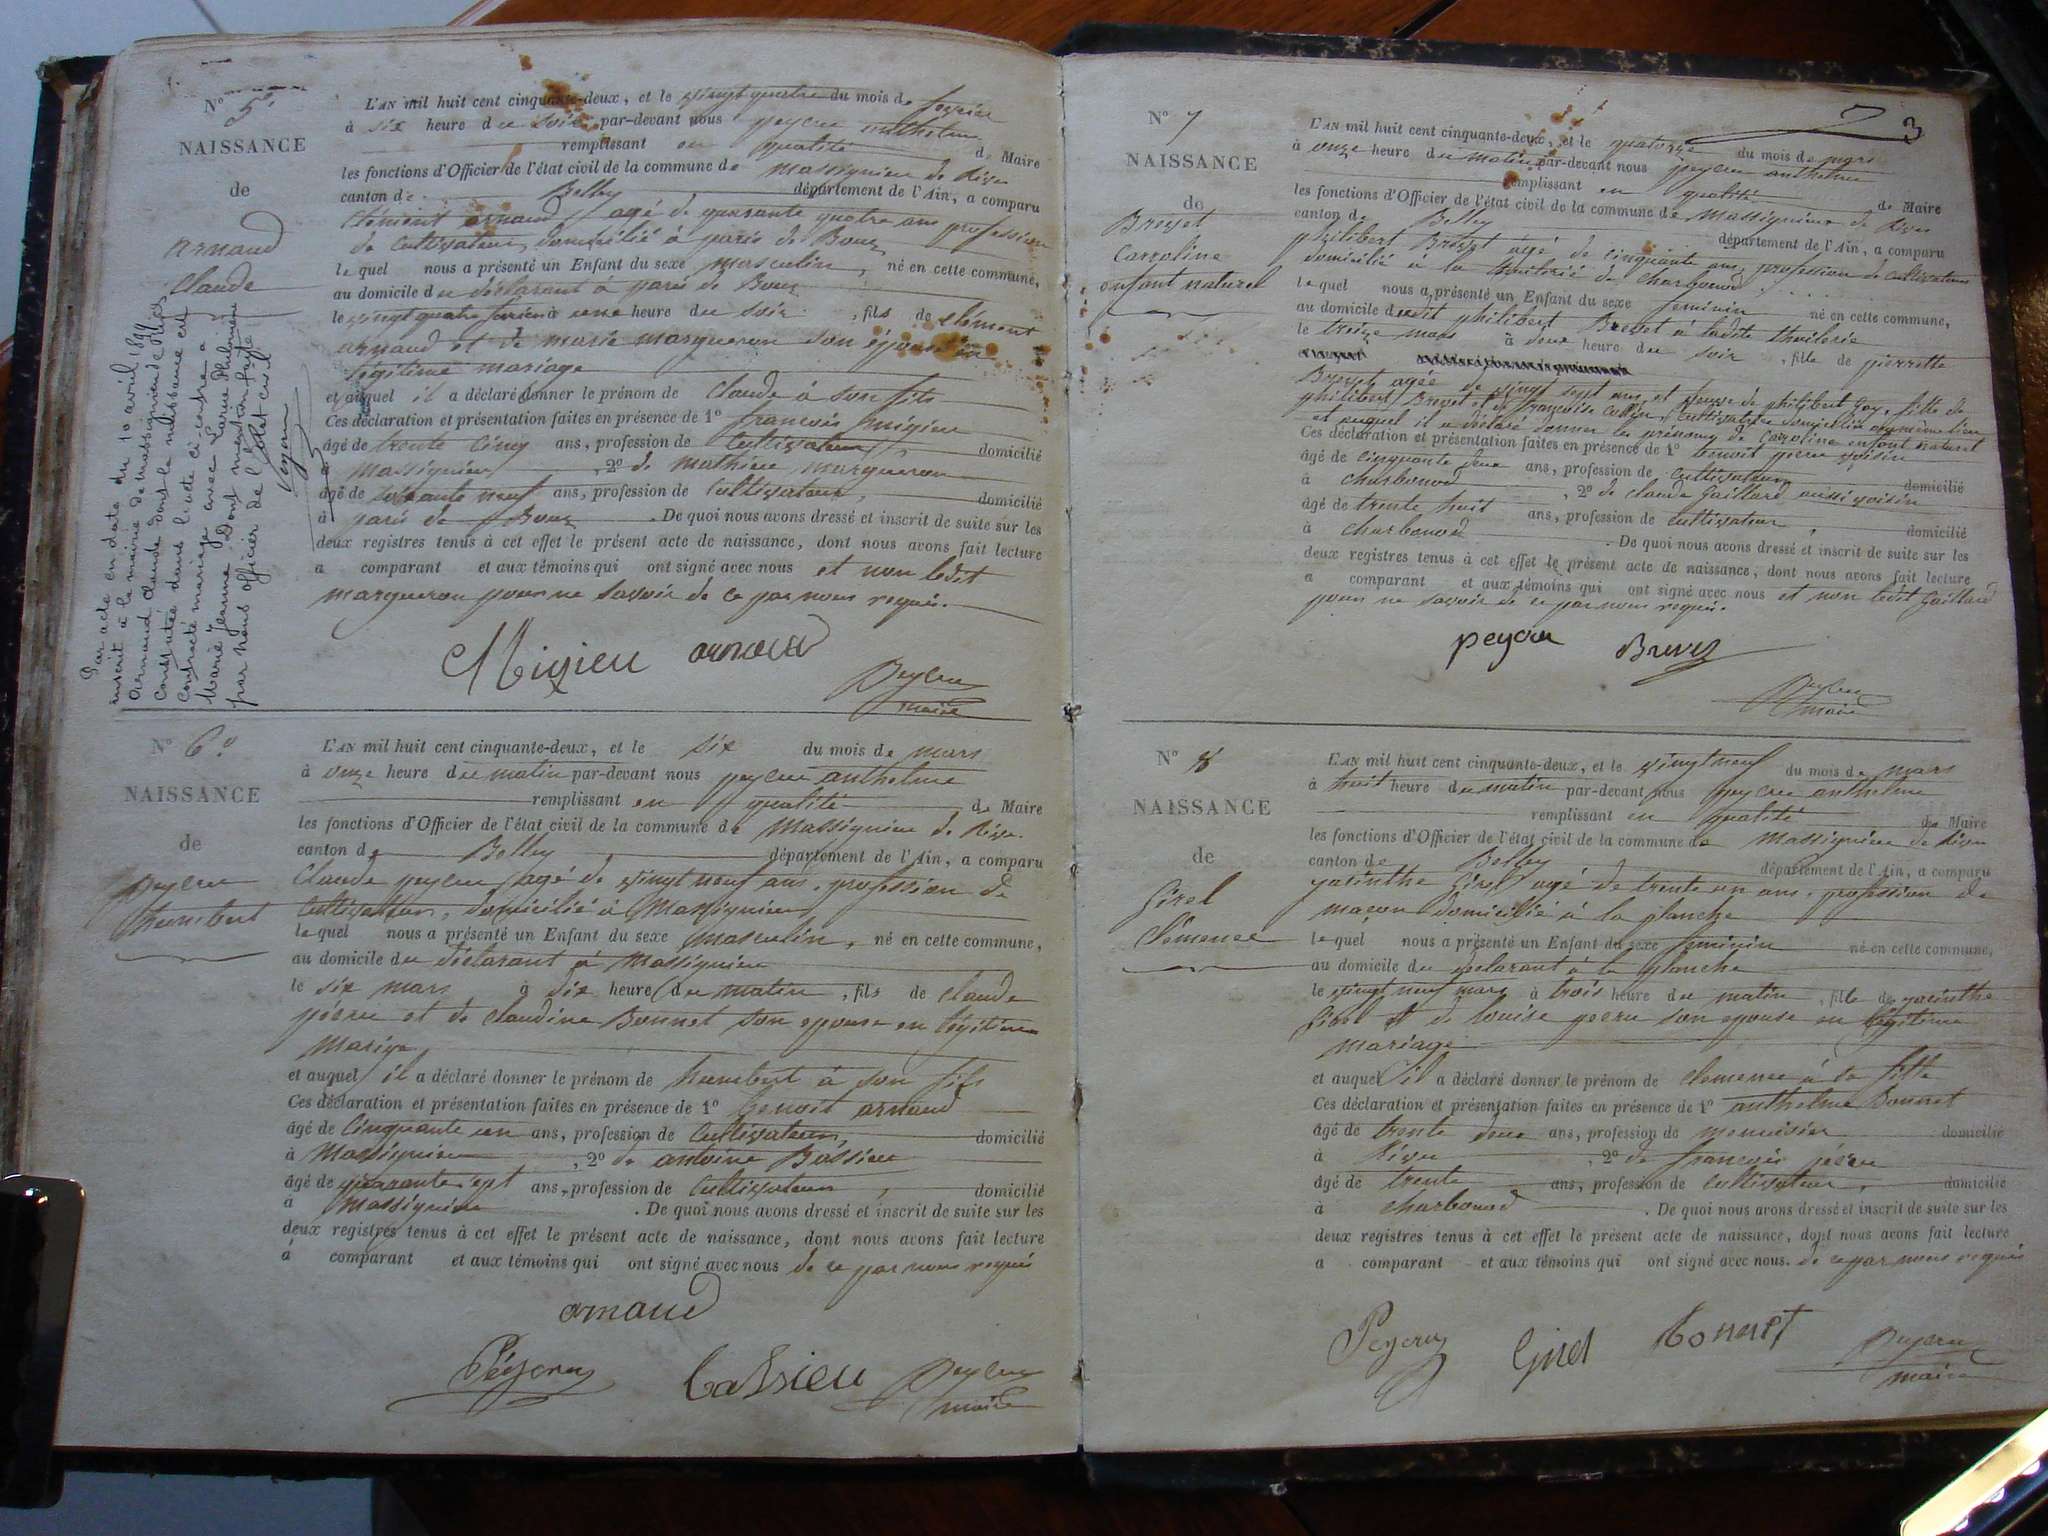 No 5o
NAISSANCE
de
arnaud
Claude
Par acte en date du 10 avril
inscrit à la mairie de massignieu de Rives
arnaud claude dont la naissance est
constatée dans l'acte ci-contre a
contracté mariage avec
Marie Jeanne Dont mention faite
par nous officier de l'état civil
L'AN mil huit cent cinquante-deux, et le vingt quatre du mois de fevrier
à six heure du soir par-devant nous peyeru anthelme
remplissant en qualité de Maire
les fonctions d'Officier de l'état civil de la commune de massignieu de Rives
canton de Belley département de l'Ain, a comparu
Clément arnaud agé de quarante quatre ans profession
de cultivateur domicilié à paris de Bour
le quel nous a présenté un Enfant du sexe masculin, né en cette commune,
au domicile du déclarant à paris de Bour
le vingt quatre fevrier à une heure du soir, fils de clément
arnaud et de marie margueron son épouse en
légitime mariage
et auquel il a déclaré donner le prénom de claude à son fils
Ces déclaration et présentation faites en présence de 1o francois migieu
âgé de trente cinq ans, profession de cultivateur, domicilié
à Massignieu, 2o de mathieu margueron
âgé de soixante neuf ans, profession de cultivateur, domicilié
à paris de Bour. De quoi nous avons dressé et inscrit de suite sur les
deux registres tenus à cet effet le présent acte de naissance, dont nous avons fait lecture
a comparant et aux témoins qui ont signé avec nous et non ledit
margueron pour ne savoir de ce par nous requis.
Migieu arnaud
Peyeru
maire
No 6o
NAISSANCE
de
peyeru
humbert
L'AN mil huit cent cinquante-deux, et le six du mois de mars
à onze heure du matin par-devant nous peyeru anthelme
remplissant en qualité de Maire
les fonctions d'Officier de l'état civil de la commune de Massignieu de Rives
canton de Belley département de l'Ain, a comparu
Claude peyeru agé de vingt neuf ans, profession de
cultivateur, domicilié à Massignieu
le quel nous a présenté un Enfant du sexe masculin, né en cette commune,
au domicile du déclarant à Massignieu
le six mars à dix heure du matin, fils de claude
péeru et de claudine Bonnet son epouse en légitime
mariage
et auquel il a déclaré donner le prénom de humbert à son fils
Ces déclaration et présentation faites en présence de 1o benoit arnaud
âgé de Cinquante un ans, profession de cultivateur, domicilié
à Massignieu, 2o de antoine Bassieu
âgé de quarante sept ans, profession de cultivateur, domicilié
à Massignieu. De quoi nous avons dressé et inscrit de suite sur les
deux registres tenus à cet effet le présent acte de naissance, dont nous avons fait lecture
a comparant et aux témoins qui ont signé avec nous de ce par nous requis
arnaud
Péyeru bassieu Peyeru
maire
3
No 7
NAISSANCE
de
Brevet
Carroline
enfant naturel
L'AN mil huit cent cinquante-deux, et le quatorze du mois de mars
à onze heure du matin par-devant nous peyeru anthelme
remplissant en qualité de Maire
les fonctions d'Officier de l'état civil de la commune de Massignieu de Rives
canton de Belley département de l'Ain, a comparu
philibert Brevet agé de cinquante ans, profession de cultivateur
domicilié à la thuilerie de charbonod
le quel nous a présenté un Enfant du sexe feminin né en cette commune,
au domicile dudit philibert Brevet à ladite thuilerie
le treize mars à deux heure du soir, fille de pierrette
Brevet agée de vingt sept ans et veuve de philibert Goy, fille de
philibert Brevet et de françoise Collin, cultivatrice domiciliée au même lieu
et auquel il a déclaré donner les prénoms de Carroline enfant naturel
Ces déclaration et présentation faites en présence de 1o benoit péeru voisin
âgé de cinquante deux ans, profession de cultivateur domicilié
à charbonod, 2o de claude Gaillard aussi voisin
âgé de trente huit ans, profession de cultivateur, domicilié
à charbonod. De quoi nous avons dressé et inscrit de suite sur les
deux registres tenus à cet effet le présent acte de naissance, dont nous avons fait lecture
a comparant et aux témoins qui ont signé avec nous et non ledit Gaillard
pour ne savoir de ce par nous requis.
peyeru Brevet
Peyeru
maire
No 8
NAISSANCE
de
Girel
Clémence
L'AN mil huit cent cinquante-deux, et le vingt neuf du mois de mars
à huit heure du matin par-devant nous peyeru anthelme
remplissant en qualité de Maire
les fonctions d'Officier de l'état civil de la commune de Massignieu de Rives
canton de Belley département de l'Ain, a comparu
yacinthe Girel agé de trente un ans, profession de
macon domicilié à la planche
le quel nous a présenté un Enfant du sexe feminin né en cette commune,
au domicile du declarant à la planche
le vingt neuf mars à trois heure du matin, fille de yacinthe
Girel et de louise peeru son epouse en légitime
mariage
et auquel il a déclaré donner le prénom de clemence à sa fille
Ces déclaration et présentation faites en présence de 1o anthelme Bonnet
âgé de trente deux ans, profession de menuisier domicilié
à Rives, 2o de francois péeru
âgé de trente ans, profession de cultivateur, domicilié
à charbonod. De quoi nous avons dressé et inscrit de suite sur les
deux registres tenus à cet effet le présent acte de naissance, dont nous avons fait lecture
a comparant et aux témoins qui ont signé avec nous. de ce par nous requis
Peyeru Girel bonnet Peyeru
maire